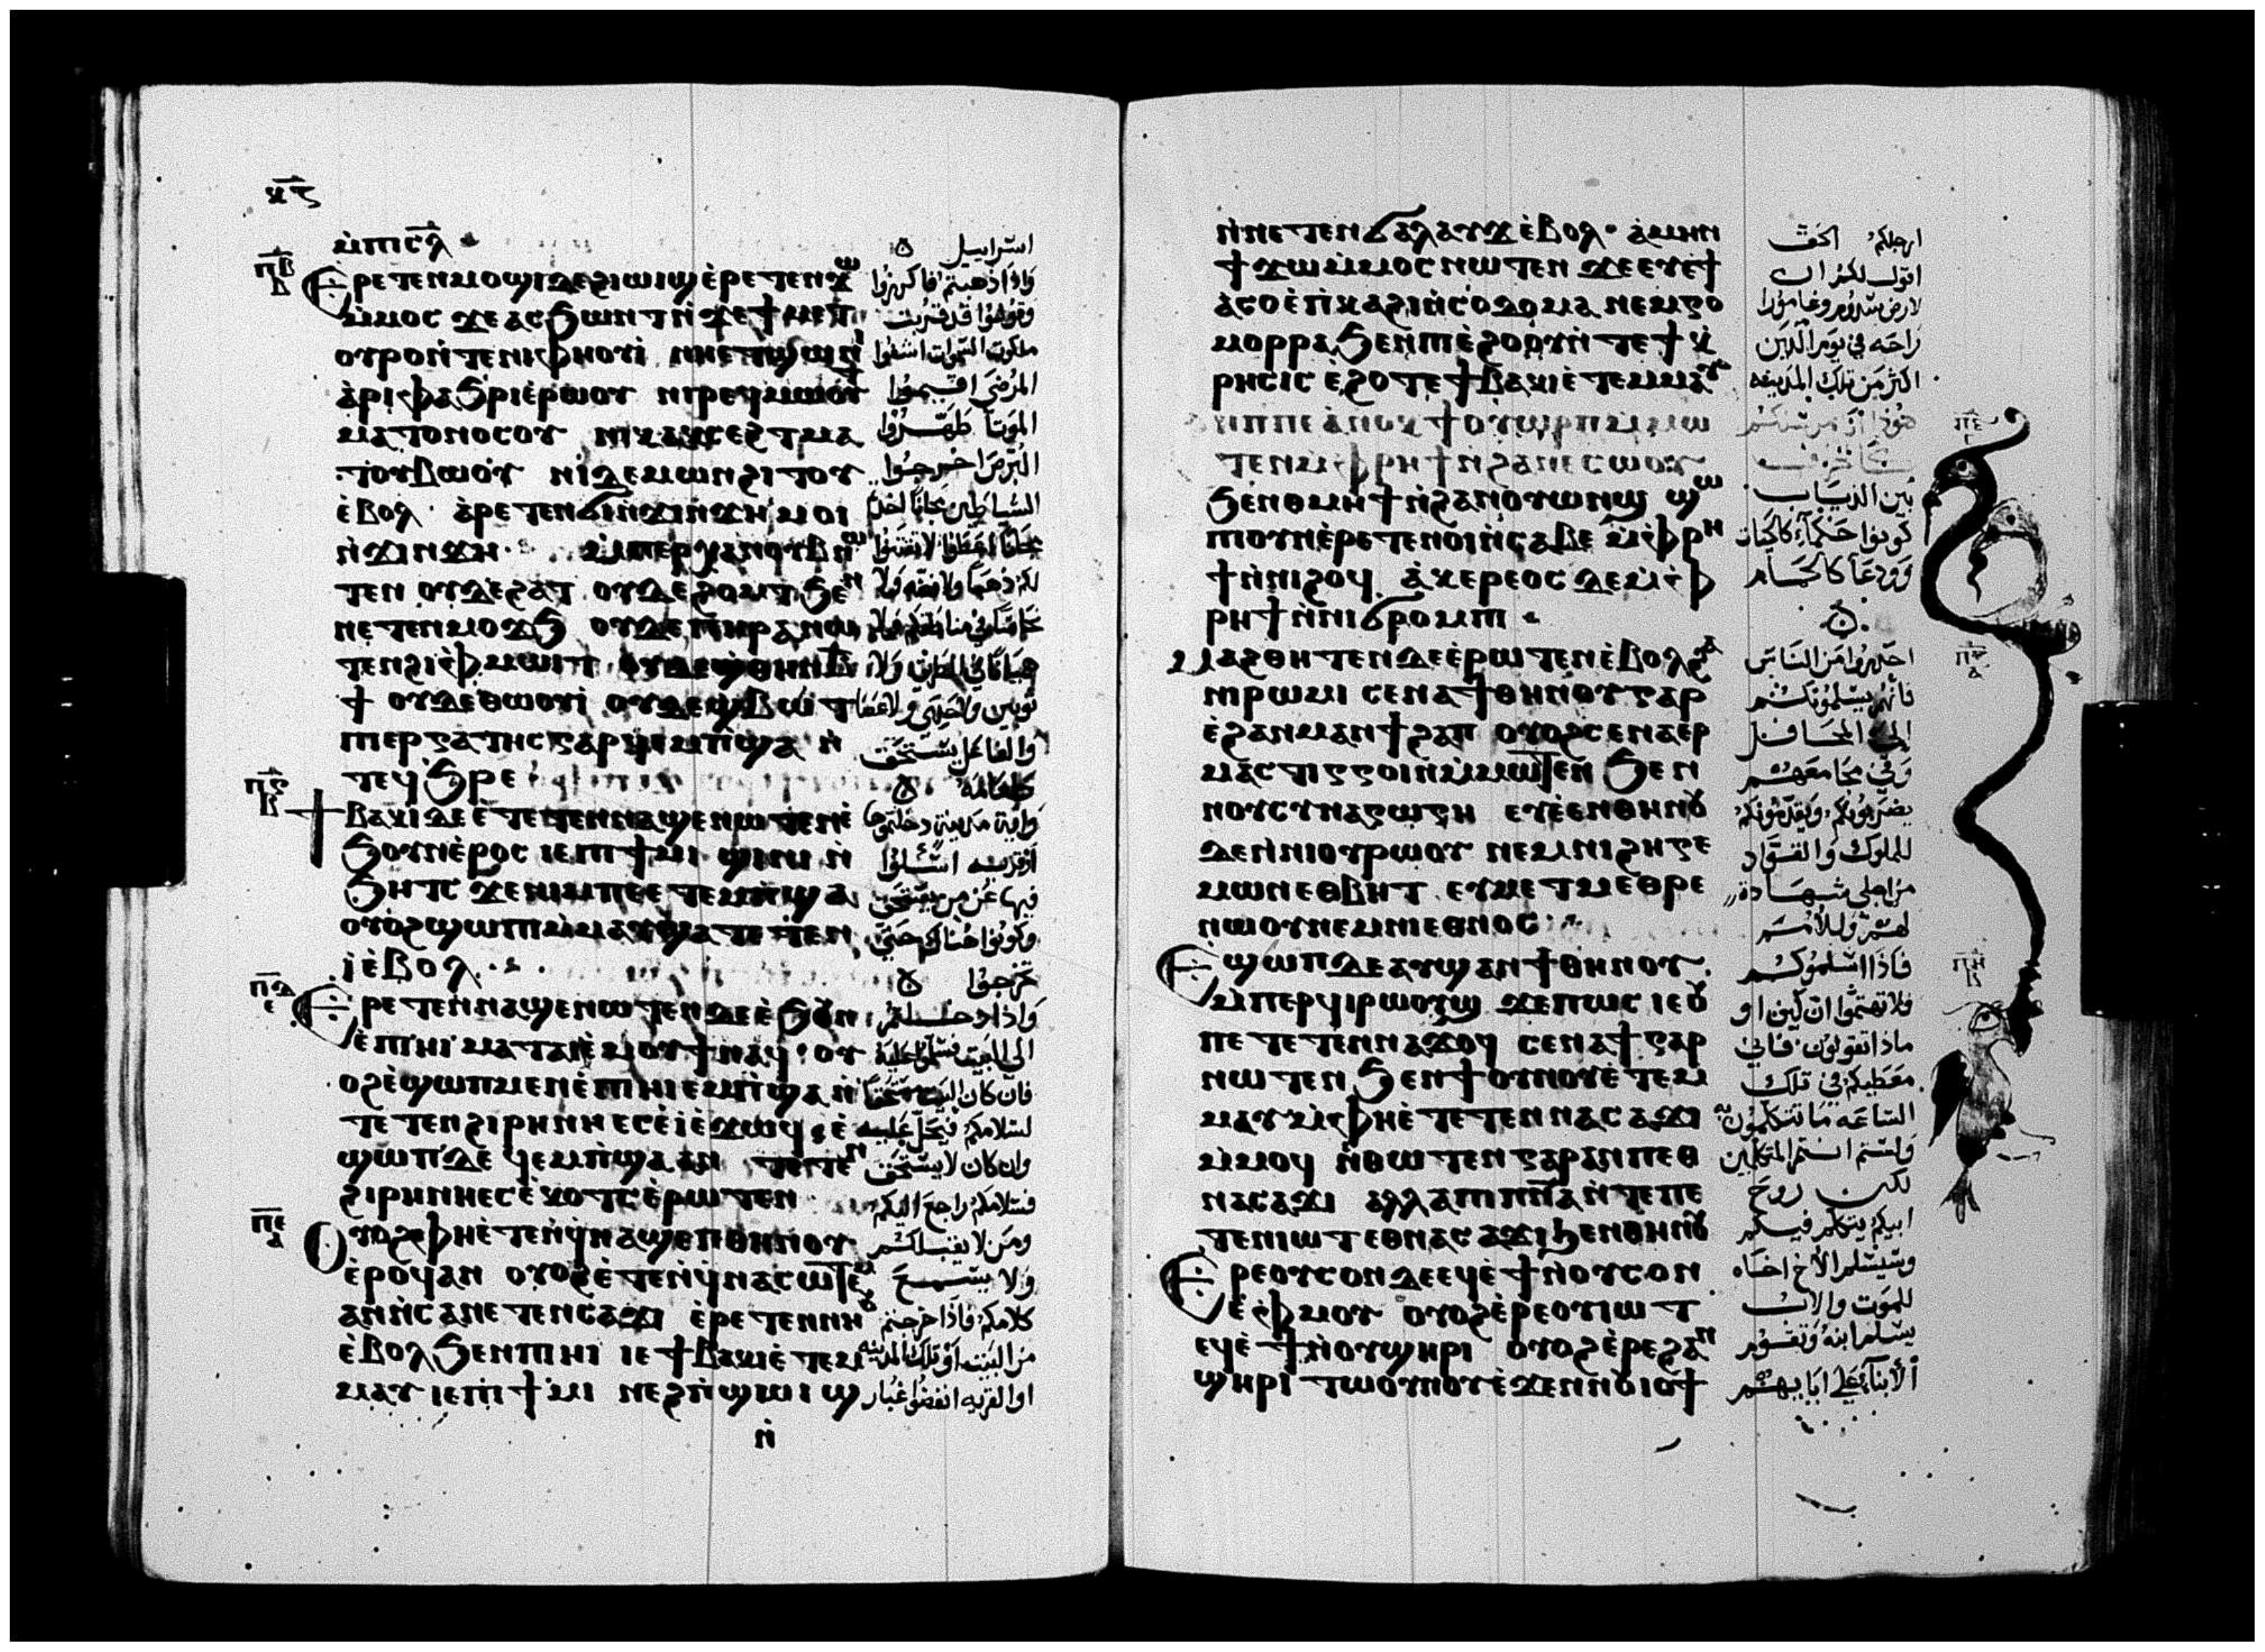 ⲕ̅ⲋ̅
ⲙ̀ⲡⲓⲥ̅ⲗ̅
ⲡ̅ⲃ̅
Ⲉⲣⲉⲧⲉⲛⲙⲟϣⲓⲇⲉϩⲓⲱⲓϣⲉ̀ⲣⲉⲧⲉⲛϫⲱ
ⲙ̀ⲙⲟⲥ ϫⲉⲁⲥϧⲱⲛⲧⲛ̀ϫⲉϯⲙⲉⲧ
ⲟⲩⲣⲟⲛ̀ⲧⲉⲛⲓⲫⲏⲟⲩⲓ̀ ⲛⲏⲉⲧϣⲱⲛⲓ
ⲁ̀ⲣⲓⲫⲁϧⲣⲓⲉ̀ⲣⲱⲟⲩ ⲛⲓⲣⲉϥⲙⲱⲟⲩⲧ
ⲙⲁⲧⲟⲩⲛⲟⲥⲟⲩ ⲛⲓⲕⲁⲕⲥⲉϩⲧⲙⲁ
ⲧⲟⲩⲃⲱⲟⲩ ⲛⲓⲇⲉⲙⲱⲛϩⲓⲧⲟⲩ
ⲉ̀ⲃⲟⲗ ⲁ̀ⲣⲉⲧⲉⲛϭⲓⲛ̀ϫⲓⲛϫⲏ ⲙⲟⲓ
ⲛ̀ϫⲓⲛϫⲏ ⲙ̀ⲡⲉⲣⲭⲁⲛⲟⲩⲃⲛⲱ
ⲧⲉⲛ ⲟⲩⲇⲉϩⲁⲧ ⲟⲩⲇⲉϩⲟⲙⲧϧⲉⲛ
ⲛⲉⲧⲉⲛⲙⲟϫϧ ⲟⲩⲇⲉⲡⲏⲣⲁⲛⲱ
ⲧⲉⲛϩⲓⲫⲙⲱⲓⲧ ⲟⲩⲇⲉϣⲑⲏⲛⲃ̅
ϯ ⲟⲩⲇⲉⲑⲱⲟⲩⲓ ⲟⲩⲇⲉϣⲃⲱⲧ
ⲡⲉⲣⲅⲁⲧⲏⲥⲅⲁⲣϥⲉⲙⲡ̀ϣⲁ ⲛ̀
ⲧⲉϥϧⲣⲉ
ⲡ̅ⲅ̅
ϯⲃⲁⲕⲓⲇⲉⲉ̀ⲧⲉⲧⲉⲛⲛⲁϣⲉⲛⲱⲧⲉⲛⲉ̀
ϧⲟⲩⲛⲉ̀ⲣⲟⲥ ⲓⲉⲡⲓϯⲙⲓ ϣⲓⲛⲓ ⲛ̀
ϧⲏⲧⲥ ϫⲉⲛⲓⲙⲡⲉⲉⲧⲉⲙⲡ̀ϣⲁ
ⲟⲩⲟϩϣⲱⲡⲓⲙ̀ⲙⲁⲩϣⲁⲧⲉⲧⲉⲛ
ⲓ̀ⲉ̀ⲃⲟⲗ
ⲡ̅ⲇ̅
Ⲉⲣⲉⲧⲉⲛⲛⲁϣⲉⲛⲱⲧⲉⲛⲇⲉⲉ̀ϧⲟⲩⲛ
ⲉ̀ⲡⲓⲏⲓ ⲙⲁⲧⲁⲡⲉⲙⲟⲩϯⲛⲁϥ ⲟⲩ
ⲟϩⲉ̀ϣⲱⲡⲙⲉⲛⲉ̀ⲡⲓⲏⲓⲉⲙⲡ̀ϣⲁⲛ̀
ⲧⲉⲧⲉⲛϩⲓⲣⲏⲛⲏⲉⲥⲉ̀ⲓ̀ⲉ̀ϫⲱϥ ⲉ̀
ϣⲱⲡⲇⲉ ϥⲉⲙⲡ̀ϣⲁⲁⲛ ⲧⲉⲧⲉⲛ
ϩⲓⲣⲏⲛⲏⲉⲥⲉ̀ⲕⲟⲧⲥⲉ̀ⲣⲱⲧⲉⲛ
ⲡ̅ⲉ̅
Ⲟⲩⲟϩⲫⲏⲉ̀ⲧⲉⲛϥ̀ⲛⲁϣⲉⲡⲑⲏⲛⲟⲩ
ⲉ̀ⲣⲟϥⲁⲛ ⲟⲩⲟϩⲉ̀ⲧⲉⲛϥ̀ⲛⲁⲥⲱⲧⲉⲙ
ⲁⲛⲛ̀ⲥⲁⲛⲉⲧⲉⲛⲥⲁϫⲓ ⲉ̀ⲣⲉⲧⲉⲛⲛⲏⲟⲩ
ⲉ̀ⲃⲟⲗϧⲉⲛⲡⲓⲏⲓ ⲓⲉϯⲃⲁⲕⲓⲉ̀ⲧⲉⲙ
ⲙⲁⲩ ⲓⲉⲡⲓϯⲙⲓ ⲛⲉϩⲡ̀ϣⲱⲓϣ
ⲛ̀
اسراييل
واذا ذهبتم فاكرزوا
وقولوا قد قربت
ملكوت السموات اشفوا
المرضى اقيموا
الموتا طهروا
البرص اخرجوا
الشياطين مجانا اخذتم
مجانا اعطوا لا تقتنوا
لكم ذهبا ولا فضه ولا
نحاسا في مناطقكم ولا
هميانا في الطريق ولا
ثوبين ولا حذى ولا عصا
والفاعل يستحق
طعامه
واية مدينة دخلتموها
او قريه اسألوا
فيها عن من يستحق
وكونوا هناك حتى
تخرجوا
واذا دخلتم
الى البيت فسلموا عليه
فان كان البيت مستحقا
لسلامكم فيحل عليه
وان كان لا يستحق
فسلامكم راجع اليكم
ومن لا يقبلكم
ولا يسمع
كلامكم فاذا خرجتم
من البيت او تلك المدينه
او القريه انفضوا غبار
ⲛ̀ⲛⲉⲧⲉⲛϭⲁⲗⲁⲩϫⲉ̀ⲃⲟⲗ ⲁ̀ⲙⲏⲛ
ϯϫⲱⲙ̀ⲙⲟⲥⲛⲱⲧⲉⲛ ϫⲉⲉⲩⲉ̀ϯ
ⲁ̀ⲥⲟⲉ̀ⲡ̀ⲕⲁϩⲓⲛ̀ⲥⲟⲇⲟⲙⲁ ⲛⲉⲙⲅⲟ
ⲙⲟⲣⲣⲁϧⲉⲛⲡⲓⲉ̀ϩⲟⲟⲩⲛ̀ⲧⲉϯⲕ̀
ⲣⲏⲥⲓⲥ ⲉ̀ϩⲟⲧⲉϯⲃⲁⲕⲓⲉ̀ⲧⲉⲙⲙⲁⲩ
ⲡ̅ⲋ̅
ϩⲏⲡⲡⲉⲁ̀ⲛⲟⲕϯⲟⲩⲱⲣⲡⲙ̀ⲙⲱ
ⲧⲉⲛⲙ̀ⲫⲣⲏϯⲛ̀ϩⲁⲛⲉⲥⲱⲟⲩ
ϧⲉⲛⲑⲙⲏϯⲛ̀ϩⲁⲛⲟⲩⲱⲛϣ ϣⲱ
ⲡⲓⲟⲩⲛⲉ̀ⲣⲉⲧⲉⲛⲟⲓⲛ̀ⲥⲁⲃⲉ ⲙ̀ⲫⲣⲏ
ϯⲛ̀ⲛⲓϩⲟϥ ⲁ̀ⲕⲉⲣⲉⲟⲥ ⲇⲉⲙ̀ⲫ
ⲣⲏϯⲛ̀ⲛⲓϭⲣⲟⲙⲡⲓ
ⲡ̅ⲍ̅
Ⲙⲁϩⲑⲏⲧⲉⲛⲇⲉⲉ̀ⲣⲱⲧⲉⲛⲉ̀ⲃⲟⲗϩⲁ
ⲛⲓⲣⲱⲙⲓ ⲥⲉⲛⲁϯⲑⲏⲛⲟⲩⲅⲁⲣ
ⲉ̀ϩⲁⲛⲙⲁⲛϯϩⲁⲡ ⲟⲩⲟϩⲥⲉⲛⲁⲉⲣ
ⲙⲁⲥⲧⲓⲅⲅⲟⲓⲛⲙ̀ⲙⲱⲧⲉⲛ ϧⲉⲛ
ⲛⲟⲩⲥⲩⲛⲁⲅⲱⲅⲏ ⲉⲩⲉ̀ⲉⲛⲑⲏⲛⲟⲩ
ⲇⲉⲛ̀ⲛⲓⲟⲩⲣⲱⲟⲩ ⲛⲉⲙⲛⲓϩⲏⲅⲉ
ⲙⲱⲛⲉⲑⲃⲏⲧ ⲉⲩⲙⲉⲧⲙⲉⲑⲣⲉ
ⲛⲱⲟⲩⲛⲉⲙⲛⲓⲉⲑⲛⲟⲥ
ⲡ̅ⲏ̅
Ⲉϣⲱⲡⲇⲉⲁⲩϣⲁⲛϯⲑⲏⲛⲟⲩ
ⲙ̀ⲡⲉⲣϥⲓⲣⲱⲟⲩϣ ϫⲉⲡⲱⲥ ⲓⲉⲟⲩ
ⲡⲉⲧⲉⲧⲉⲛⲛⲁϫⲟϥ ⲥⲉⲛⲁϯⲅⲁⲣ
ⲛⲱⲧⲉⲛ ϧⲉⲛϯⲟⲩⲛⲟⲩⲉ̀ⲧⲉⲙ
ⲙⲁⲩⲙ̀ⲫⲏⲉ̀ⲧⲉⲧⲉⲛⲛⲁⲥⲁϫⲓ
ⲙ̀ⲙⲟϥ ⲛ̀ⲑⲱⲧⲉⲛⲅⲁⲣⲁⲛⲡⲉⲑ
ⲛⲁⲥⲁϫⲓ ⲁⲗⲗⲁⲡⲓⲡⲛ̅ⲁ̅ⲛ̀ⲧⲉⲡⲉ
ⲧⲉⲛⲓⲱⲧⲉⲑⲛⲁⲥⲁϫⲓϧⲉⲛⲑⲏⲛⲟⲩ
Ⲉⲣⲉⲟⲩⲥⲟⲛⲇⲉⲉϥⲉ̀ϯⲛ̀ⲟⲩⲥⲟⲛ
ⲉ̀ⲫⲙⲟⲩ ⲟⲩⲟϩⲉ̀ⲣⲉⲟⲩⲓⲱⲧ
ⲉϥⲉ̀ϯⲛ̀ⲟⲩϣⲏⲣⲓ ⲟⲩⲟϩⲉ̀ⲣⲉϩⲁⲛ
ϣⲏⲣⲓ ⲧⲱⲟⲩⲛⲟⲩⲉ̀ϫⲉⲛⲛⲟⲓⲟϯ
ارجلكم الحق
اقول لكم ان
لارض سدوم وغامورا
راحه في يوم الدين
اكثر من تلك المدينه
هوذا انا مرسلكم
كالخراف
بين الذياب
كونوا حكمآ كالحيات
وودعا كالحمام
احذروا من الناس
فانهم يسلمونكم
الى المحافل
وفي مجامعهم
يضربونكم ويقدمونكم
للملوك والقواد
من اجلي شهادة
لهم وللامم
فاذا اسلموكم
فلا تهتموا ان كيف او
ماذا تقولون فاني
معطيكم في تلك
الساعه ما تتكلمون به
ولستم انتم المتكلمين
لكن روح
ابيكم يتكلم فيكم
وسيسلم الاخ اخاه
للموت والاب
يسلم ابنه وتقوم
الابنآء على ابايهم